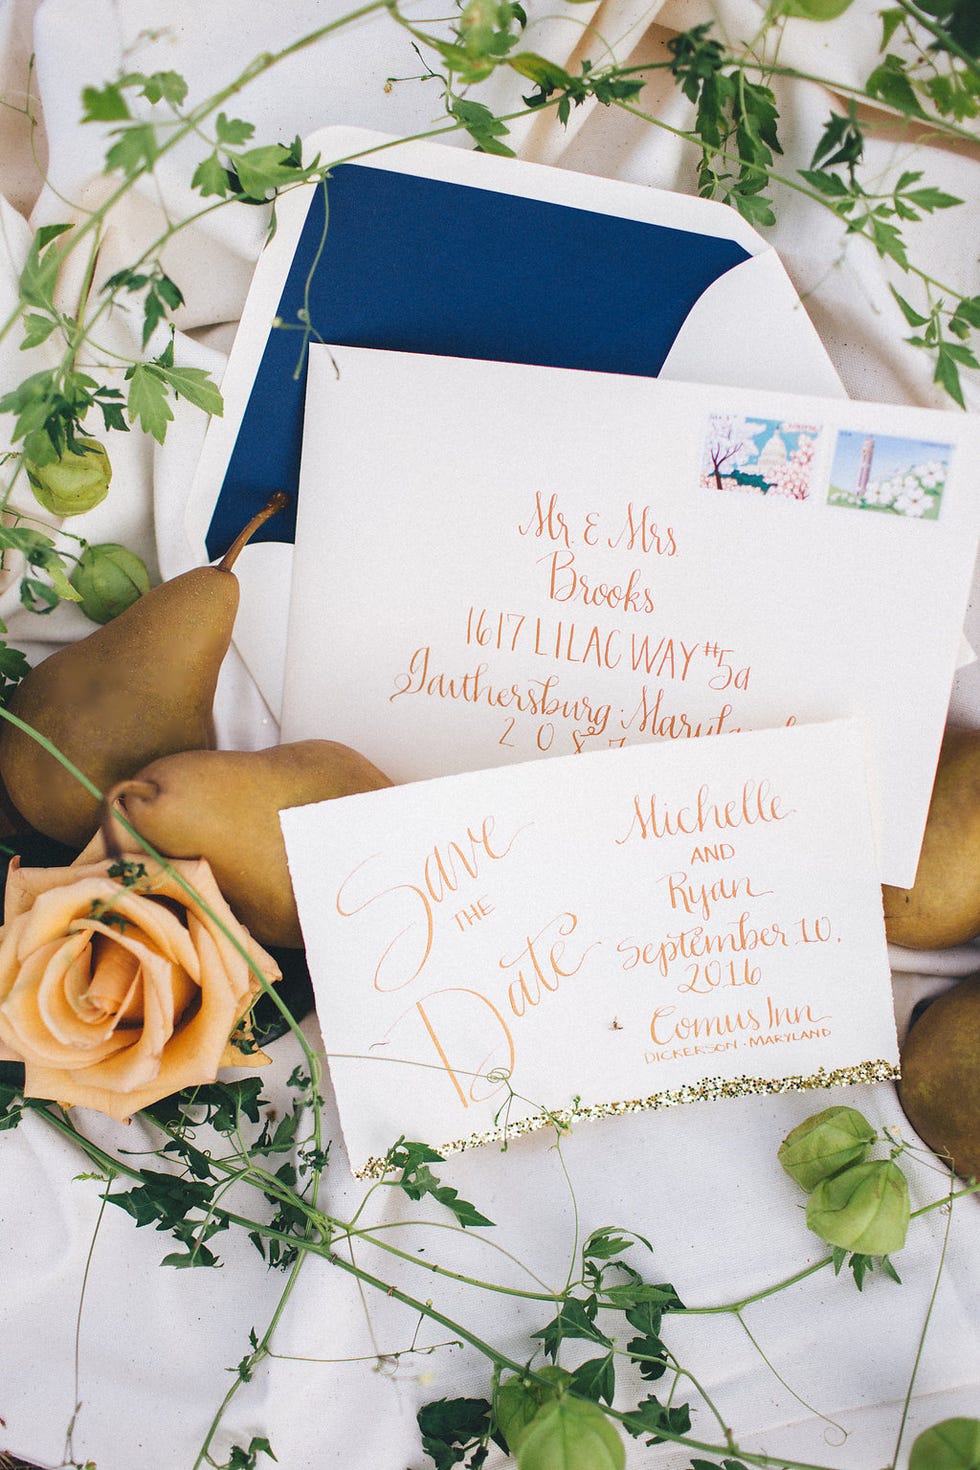 Mr. & Mrs
Brooks
1617 LILAC WAY #5a
Gaithersburg · Maryland
Save
THE
Date
Michelle
AND
Ryan
September 10.
2016
Comus Inn
DICKERSON · MARYLAND